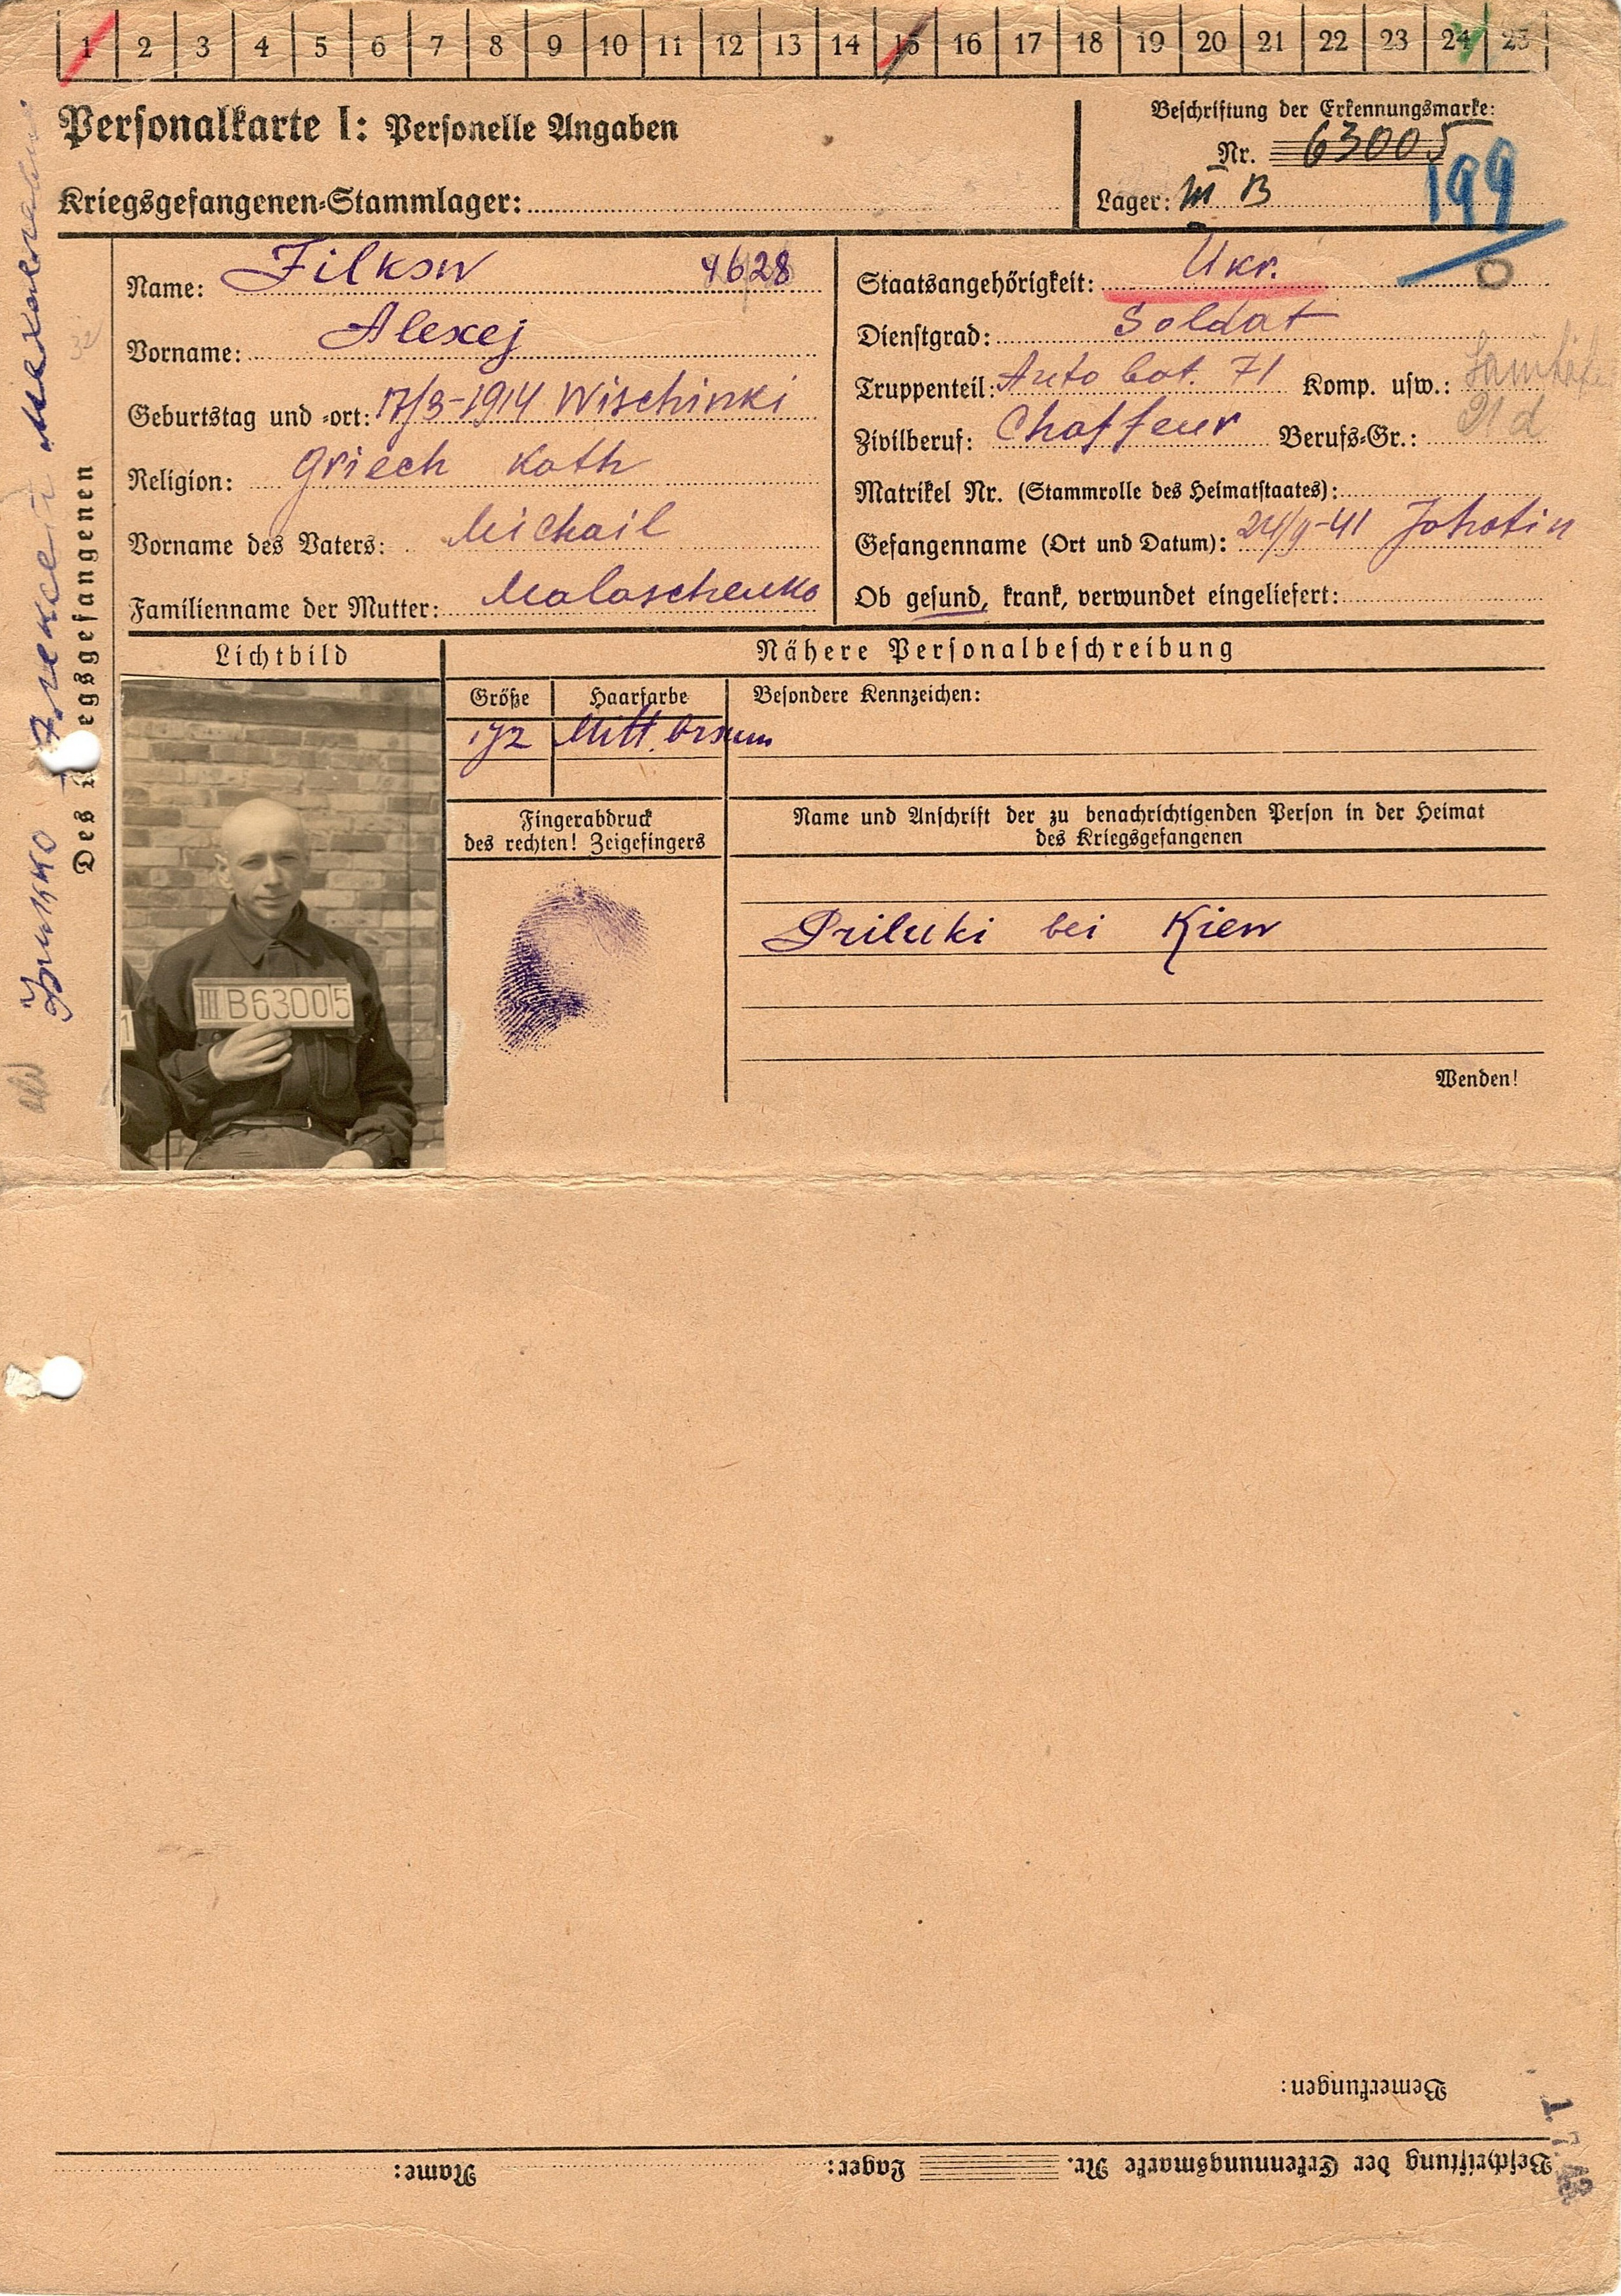 1 2 3 4 5 6 7 8 9 10 11 12 13 14 15 16 17 18 19 20 21 22 23 24 25
Personalkarte I: Personelle Angaben
Kriegsgefangenen-Stammlager:
Beschriftung der Erkennungsmarke:
Nr. 63005
Lager: III B
199
Des Kriegsgefangenen
Филко Алексей Михайлович
Name: Filkow 4628
Vorname: Alexej
Geburtstag und -ort: 17/3-1914 Wischinki
Religion: Griech Kath
Vorname des Vaters: Michail
Familienname der Mutter: Malaschenko
Staatsangehörigkeit: Ukr.
Dienstgrad: Soldat
Truppenteil: Auto bat. 71 Komp. usw.:
Zivilberuf: Chaffeur Berufs-Gr.: 21 d
Matrikel Nr. (Stammrolle des Heimatstaates):
Gefangenname (Ort und Datum): 24/9-41 Jahotin
Ob gesund, krank, verwundet eingeliefert:
Lichtbild
III B63005
1
Nähere Personalbeschreibung
Größe Haarfarbe Besondere Kennzeichen:
172 Mitt. braun
Fingerabdruck
des rechten! Zeigefingers
Name und Anschrift der zu benachrichtigenden Person in der Heimat
des Kriegsgefangenen
Priluki bei Kiew
Wenden!
Bemerkungen:
Beschriftung der Erkennungsmarke Nr. Lager: Name: